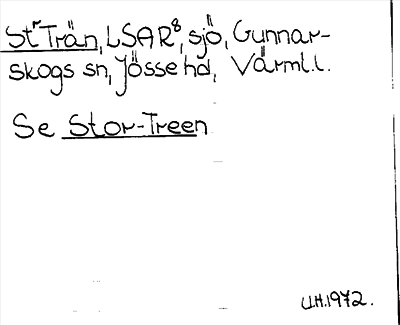 Str Trän, LSAR8, sjö, Gunnar-
skogs sn, Jösse hd, Värml.l.
Se Stor-Treen
U.H.1972.